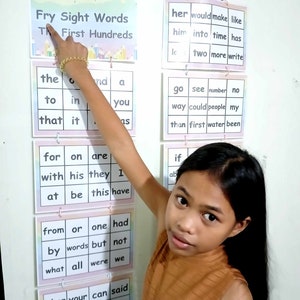 Fry Sight Words
The First Hundreds
the and a
to in you
that it was
for on are
with his they I
at be this have
from or one had
by words but not
what all were we
your can said
her would make like
him into time has
two more write
go see number no
way could people my
than first water been
if